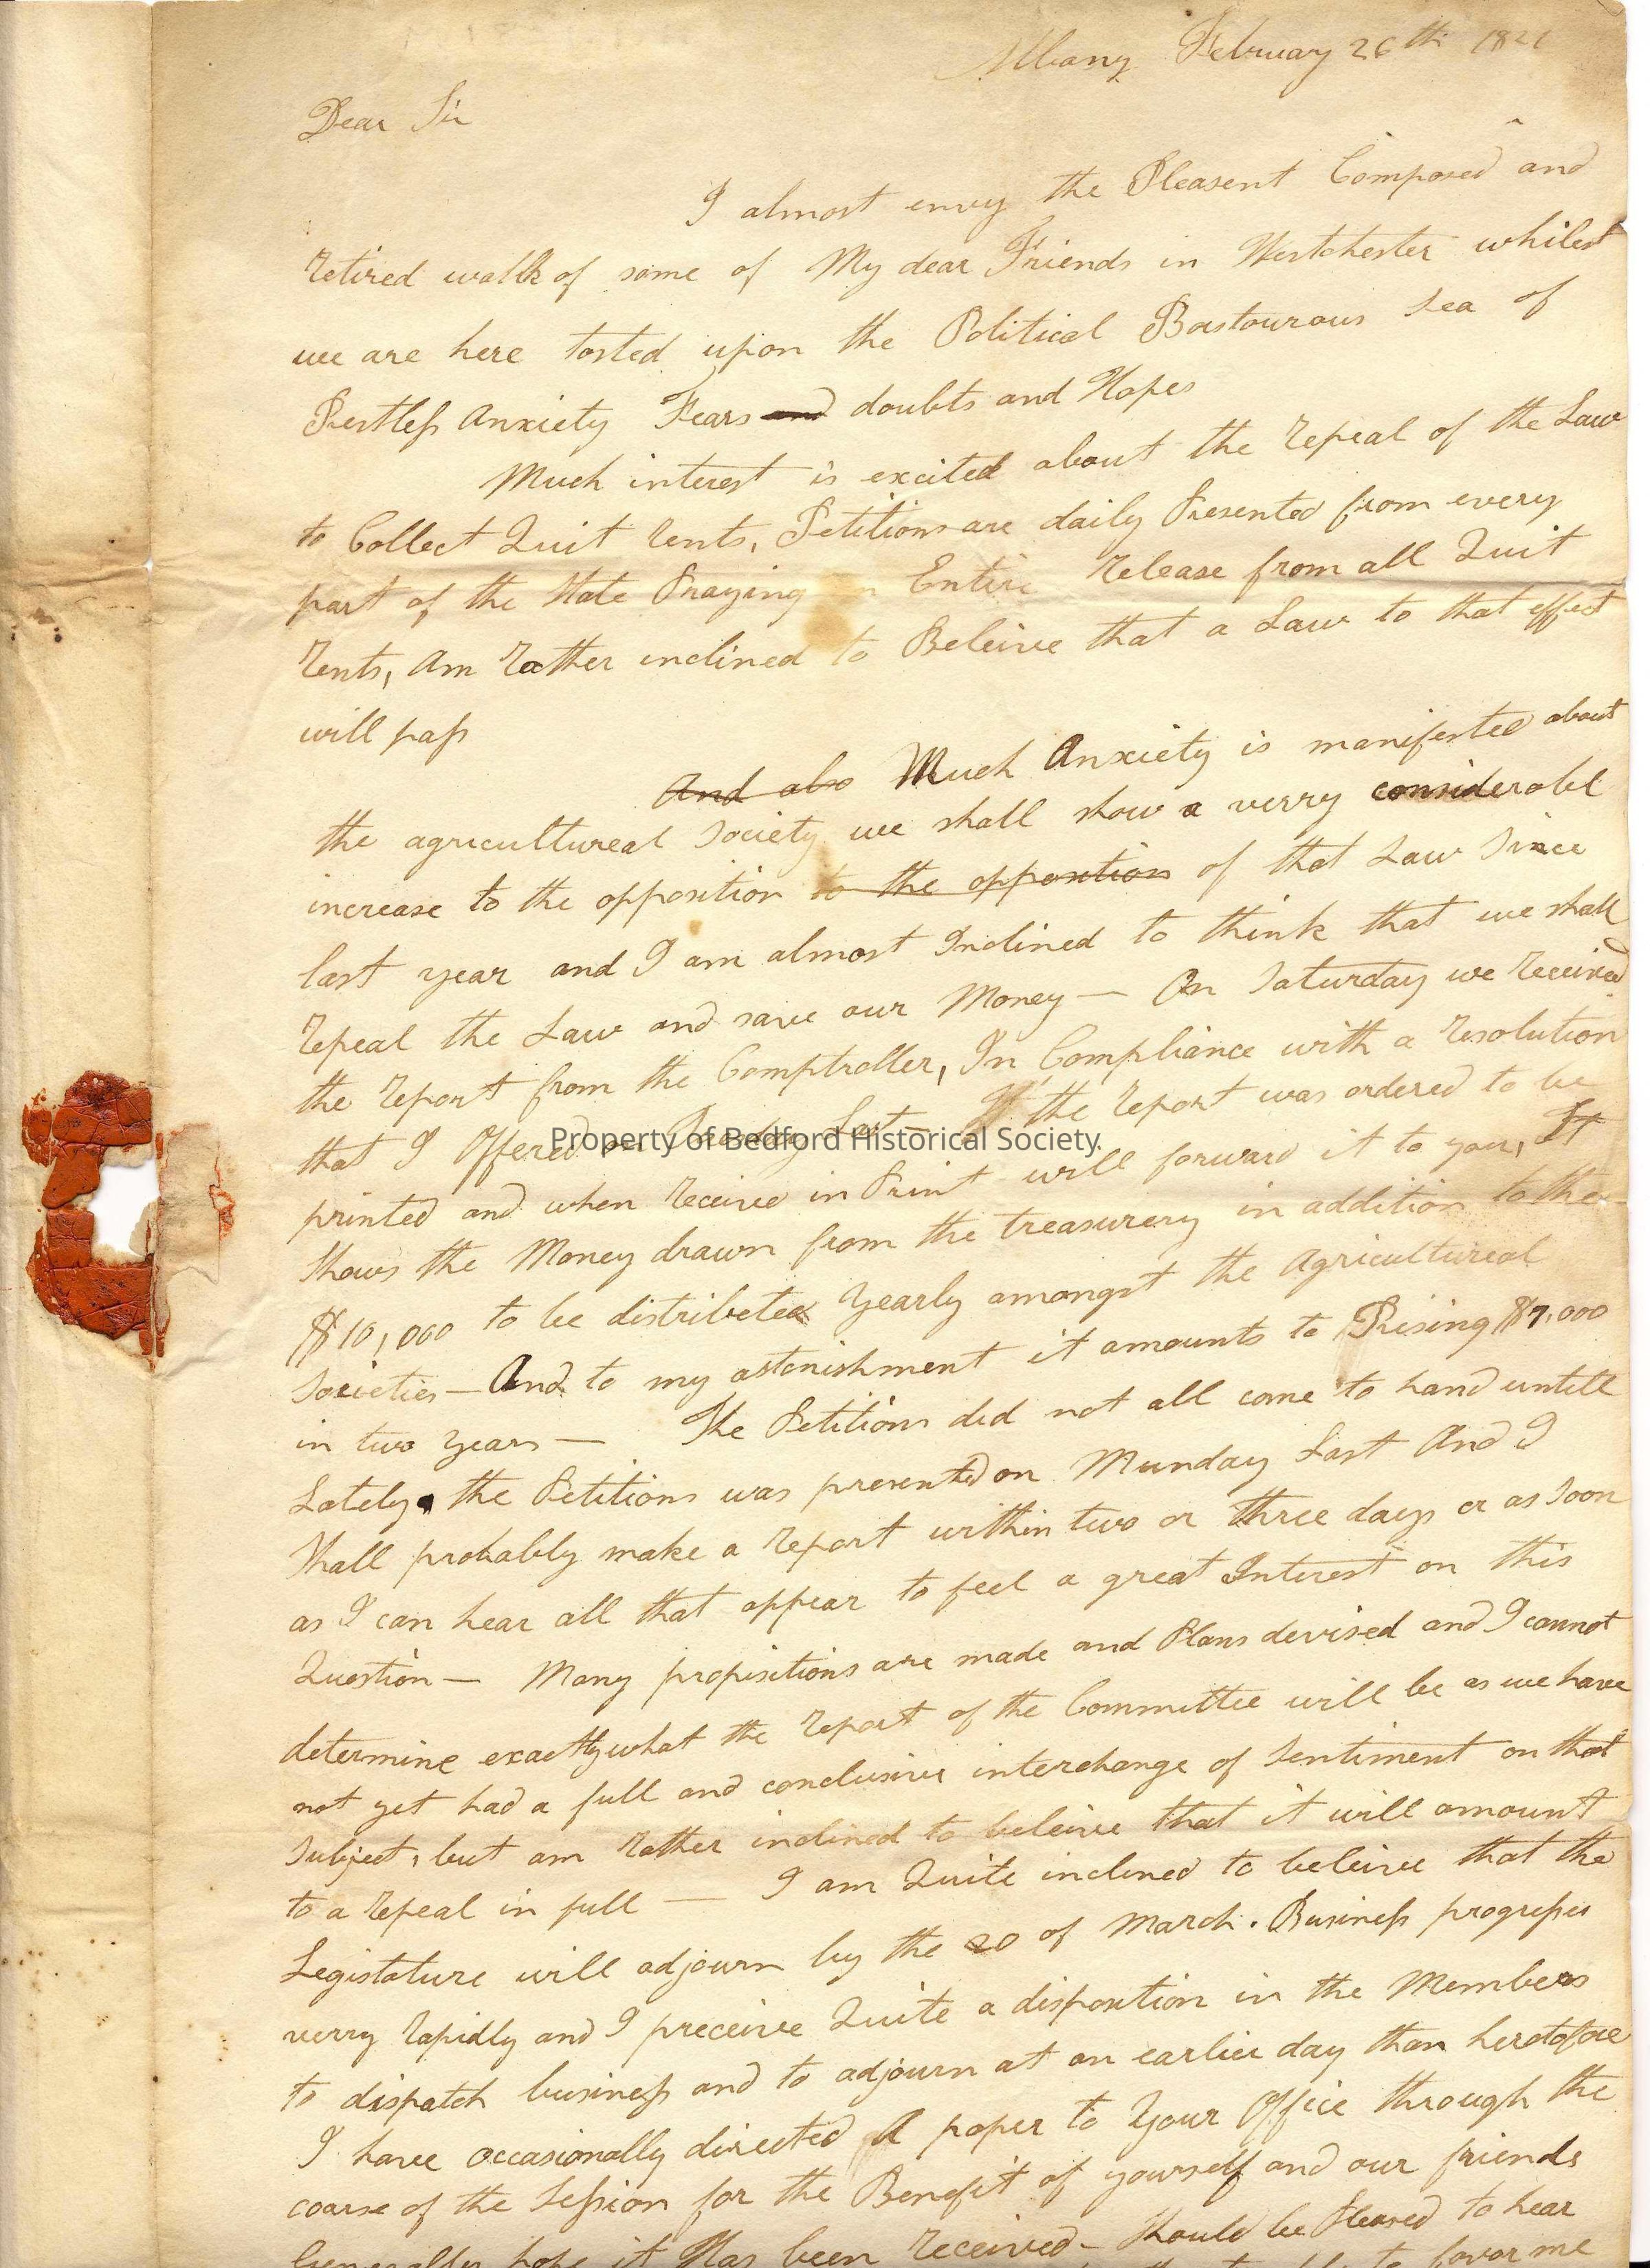 Albany February 26th 1821
Dear Sir
I almost envy the Pleasent Composed and
retired walk of some of My dear Friends in Westchester whilest
we are here tosted upon the Political Bostourous Sea of
Restless Anxiety Fears and doubts and Hopes
Much interest is excited about the repeal of the Law
to Collect Quit rents, Petitions are daily Presented from every
part of the State Praying Entire release from all Quit
rents, am rather inclined to Beleive that a Law to that effect
will pass
And also Much Anxiety is manifested about
the agricultureal Society we shall show a verry considerabel
increase to the opposition to the opposition of that Law Since
last year and I am almost Inclined to think that we shall
repeal the Law and save our Money — On Saturday we received
the report from the Comptroller, In Compliance with a resolution
that I Offered on Last — the report was ordered to be
Property of Bedford Historical Society.
printed and when receive in Print will forward it to you, It
Shows the Money drawn from the treasurery in addition to the
$10,000 to be distributed Yearly amongst the Agricultureal
Societies — And to my astonishment it amounts to Rising $7.000
in two Years — The Petitions did not all come to hand untill
Lately the Petitions was presented on Munday Last And I
Shall probably make a report within two or three days or as Soon
as I can hear all that appear to feel a great Interest on this
Question — Many propisitions are made and Plans devised and I cannot
determine exactly what the report of the Committee will be as we have
not yet had a full and conclusive interchange of Sentiment on that
Subject, but am rather inclined to beleive that it will amount
to a repeal in full — I am Quite inclined to beleive that the
Legistature will adjourn by the 20 of March. Business progresses
verry rapidly and I preceive Quite a disposition in the Members
to dispatch business and to adjourn at an earlier day than heretofore
I have occasionally directed A paper to Your Office through the
coarse of the Session for the Benefit of yourself and our friends
Generally hope it Has been received — Should be Pleased to hear
to favor me